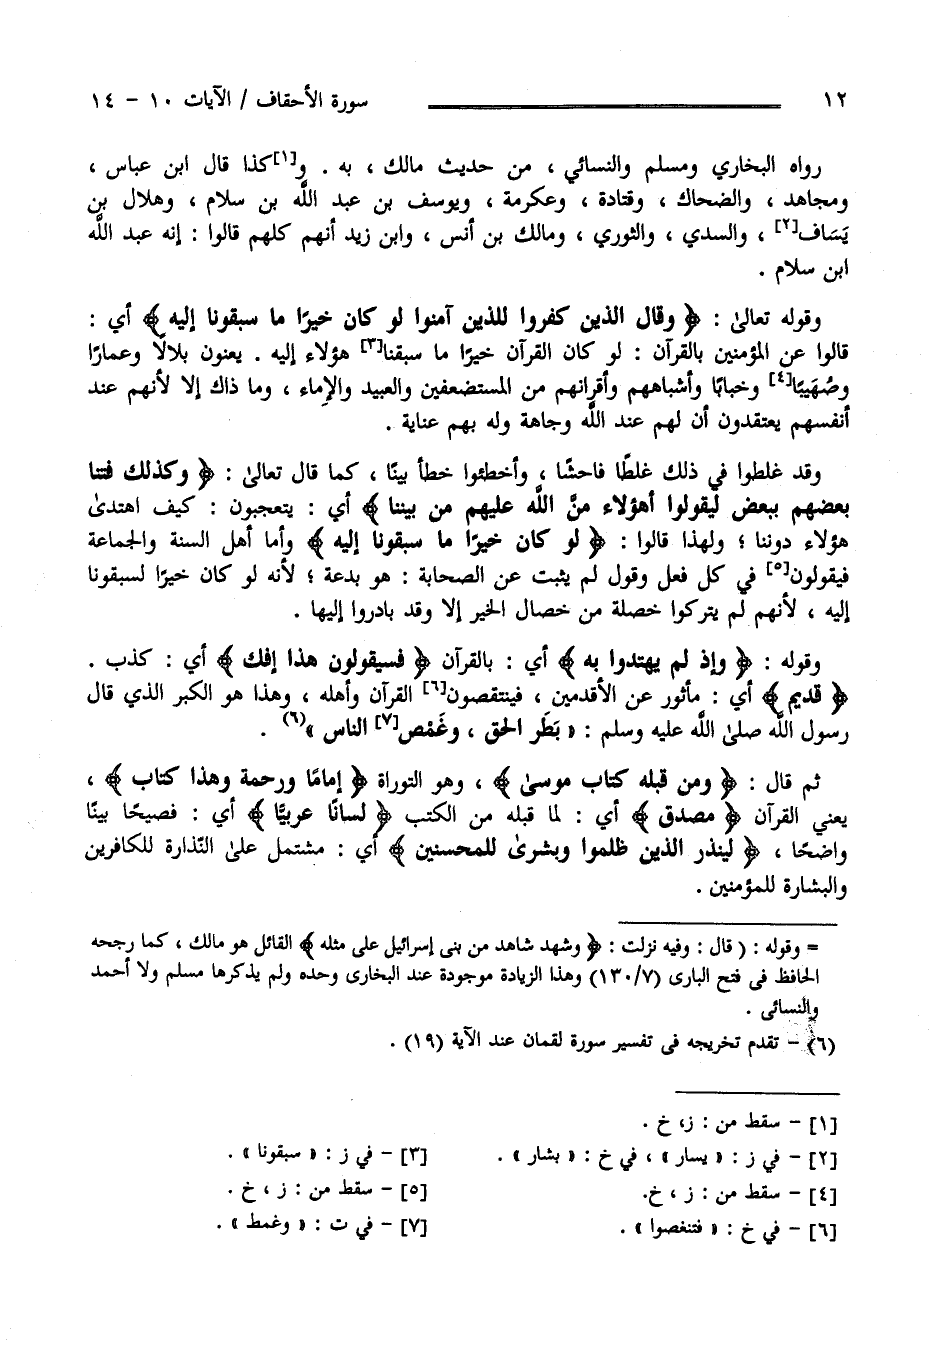 ١٢ سورة الأحقاف / الآيات ١٠ - ١٤
رواه البخاري ومسلم والنسائي ، من حديث مالك ، به . و[١]كذا قال ابن عباس ،
ومجاهد ، والضحاك ، وقتادة ، وعكرمة ، ويوسف بن عبد اللَّه بن سلام ، وهلال بن
يَسَاف[٢] ، والسدي ، والثوري ، ومالك بن أنس ، وابن زيد أنهم كلهم قالوا : إنه عبد اللَّه
ابن سلام .
وقوله تعالىٰ : ﴿ وقال الذين كفروا للذين آمنوا لو كان خيرًا ما سبقونا إليه ﴾ أي :
قالوا عن المؤمنين بالقرآن : لو كان القرآن خيرًا ما سبقنا[٣] هؤلاء إليه . يعنون بلالًا وعمارًا
وصُهَيبًا[٤] وخبابًا وأشباههم وأقرانهم من المستضعفين والعبيد والإماء ، وما ذاك إلا لأنهم عند
أنفسهم يعتقدون أن لهم عند اللَّه وجاهة وله بهم عناية .
وقد غلطوا في ذلك غلطًا فاحشًا ، وأخطئوا خطأ بينًا ، كما قال تعالىٰ : ﴿ وكذلك فتنا
بعضهم ببعض ليقولوا أهؤلاء منَّ اللَّه عليهم من بيننا ﴾ أي : يتعجبون : كيف اهتدىٰ
هؤلاء دوننا ؛ ولهذا قالوا : ﴿ لو كان خيرًا ما سبقونا إليه ﴾ وأما أهل السنة والجماعة
فيقولون[٥] في كل فعل وقول لم يثبت عن الصحابة : هو بدعة ؛ لأنه لو كان خيرًا لسبقونا
إليه ، لأنهم لم يتركوا خصلة من خصال الخير إلا وقد بادروا إليها .
وقوله : ﴿ وإذ لم يهتدوا به ﴾ أي : بالقرآن ﴿ فسيقولون هذا إفك ﴾ أي : كذب .
﴿ قديم ﴾ أي : مأثور عن الأقدمين ، فينتقصون[٦] القرآن وأهله ، وهذا هو الكبر الذي قال
رسول اللَّه صلىٰ اللَّه عليه وسلم : « بَطَر الحق ، وغَمْص[٧] الناس »(٦) .
ثم قال : ﴿ ومن قبله كتاب موسىٰ ﴾ ، وهو التوراة ﴿ إمامًا ورحمة وهذا كتاب ﴾ ،
يعني القرآن ﴿ مصدق ﴾ أي : لما قبله من الكتب ﴿ لسانًا عربيًّا ﴾ أي : فصيحًا بينًا
واضحًا ، ﴿ لينذر الذين ظلموا وبشرىٰ للمحسنين ﴾ أي : مشتمل علىٰ النّذارة للكافرين
والبشارة للمؤمنين .
= وقوله : ( قال : وفيه نزلت : ﴿ وشهد شاهد من بنى إسرائيل على مثله ﴾ القائل هو مالك ، كما رجحه
الحافظ فى فتح البارى (١٣٠/٧) وهذا الزيادة موجودة عند البخارى وحده ولم يذكرها مسلم ولا أحمد
والنسائى .
(٦) - تقدم تخريجه فى تفسير سورة لقمان عند الآية (١٩) .
[١] - سقط من : ز، خ .
[٢] - في ز : « يسار » ، في خ : « بشار » . [٣] - في ز : « سبقونا » .
[٤] - سقط من : ز ، خ. [٥] - سقط من : ز ، خ .
[٦] - في خ : « فتنغصوا » . [٧] - في ت : « وغمط » .